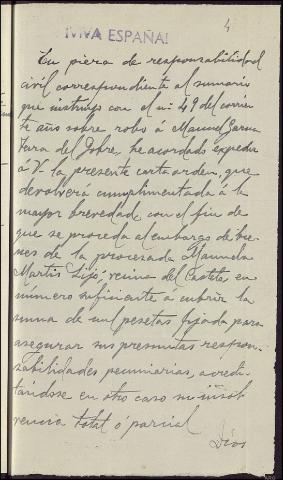 4
¡VIVA ESPAÑA!
En pieza de responsabilidad
civil correspondiente al sumario
que instruyo con el nº 49 del corrien
te año sobre robo á Manuel Garcia
Jura del Pobre, he acordado expedir
á V. la presente carta orden, que
devolverá cumplimentada á la
mayor brevedad, con el fin de
que se proceda al embargo de bie-
nes de la procesada Manuela
Martis, vecina del Castelo, en
número suficiente a cubrir la
suma de mil pesetas fijada para
asegurar sus presuntas respon-
sabilidades pecuniarias, acredi-
tándose en otro caso su insol
vencia total ó parcial
Dios